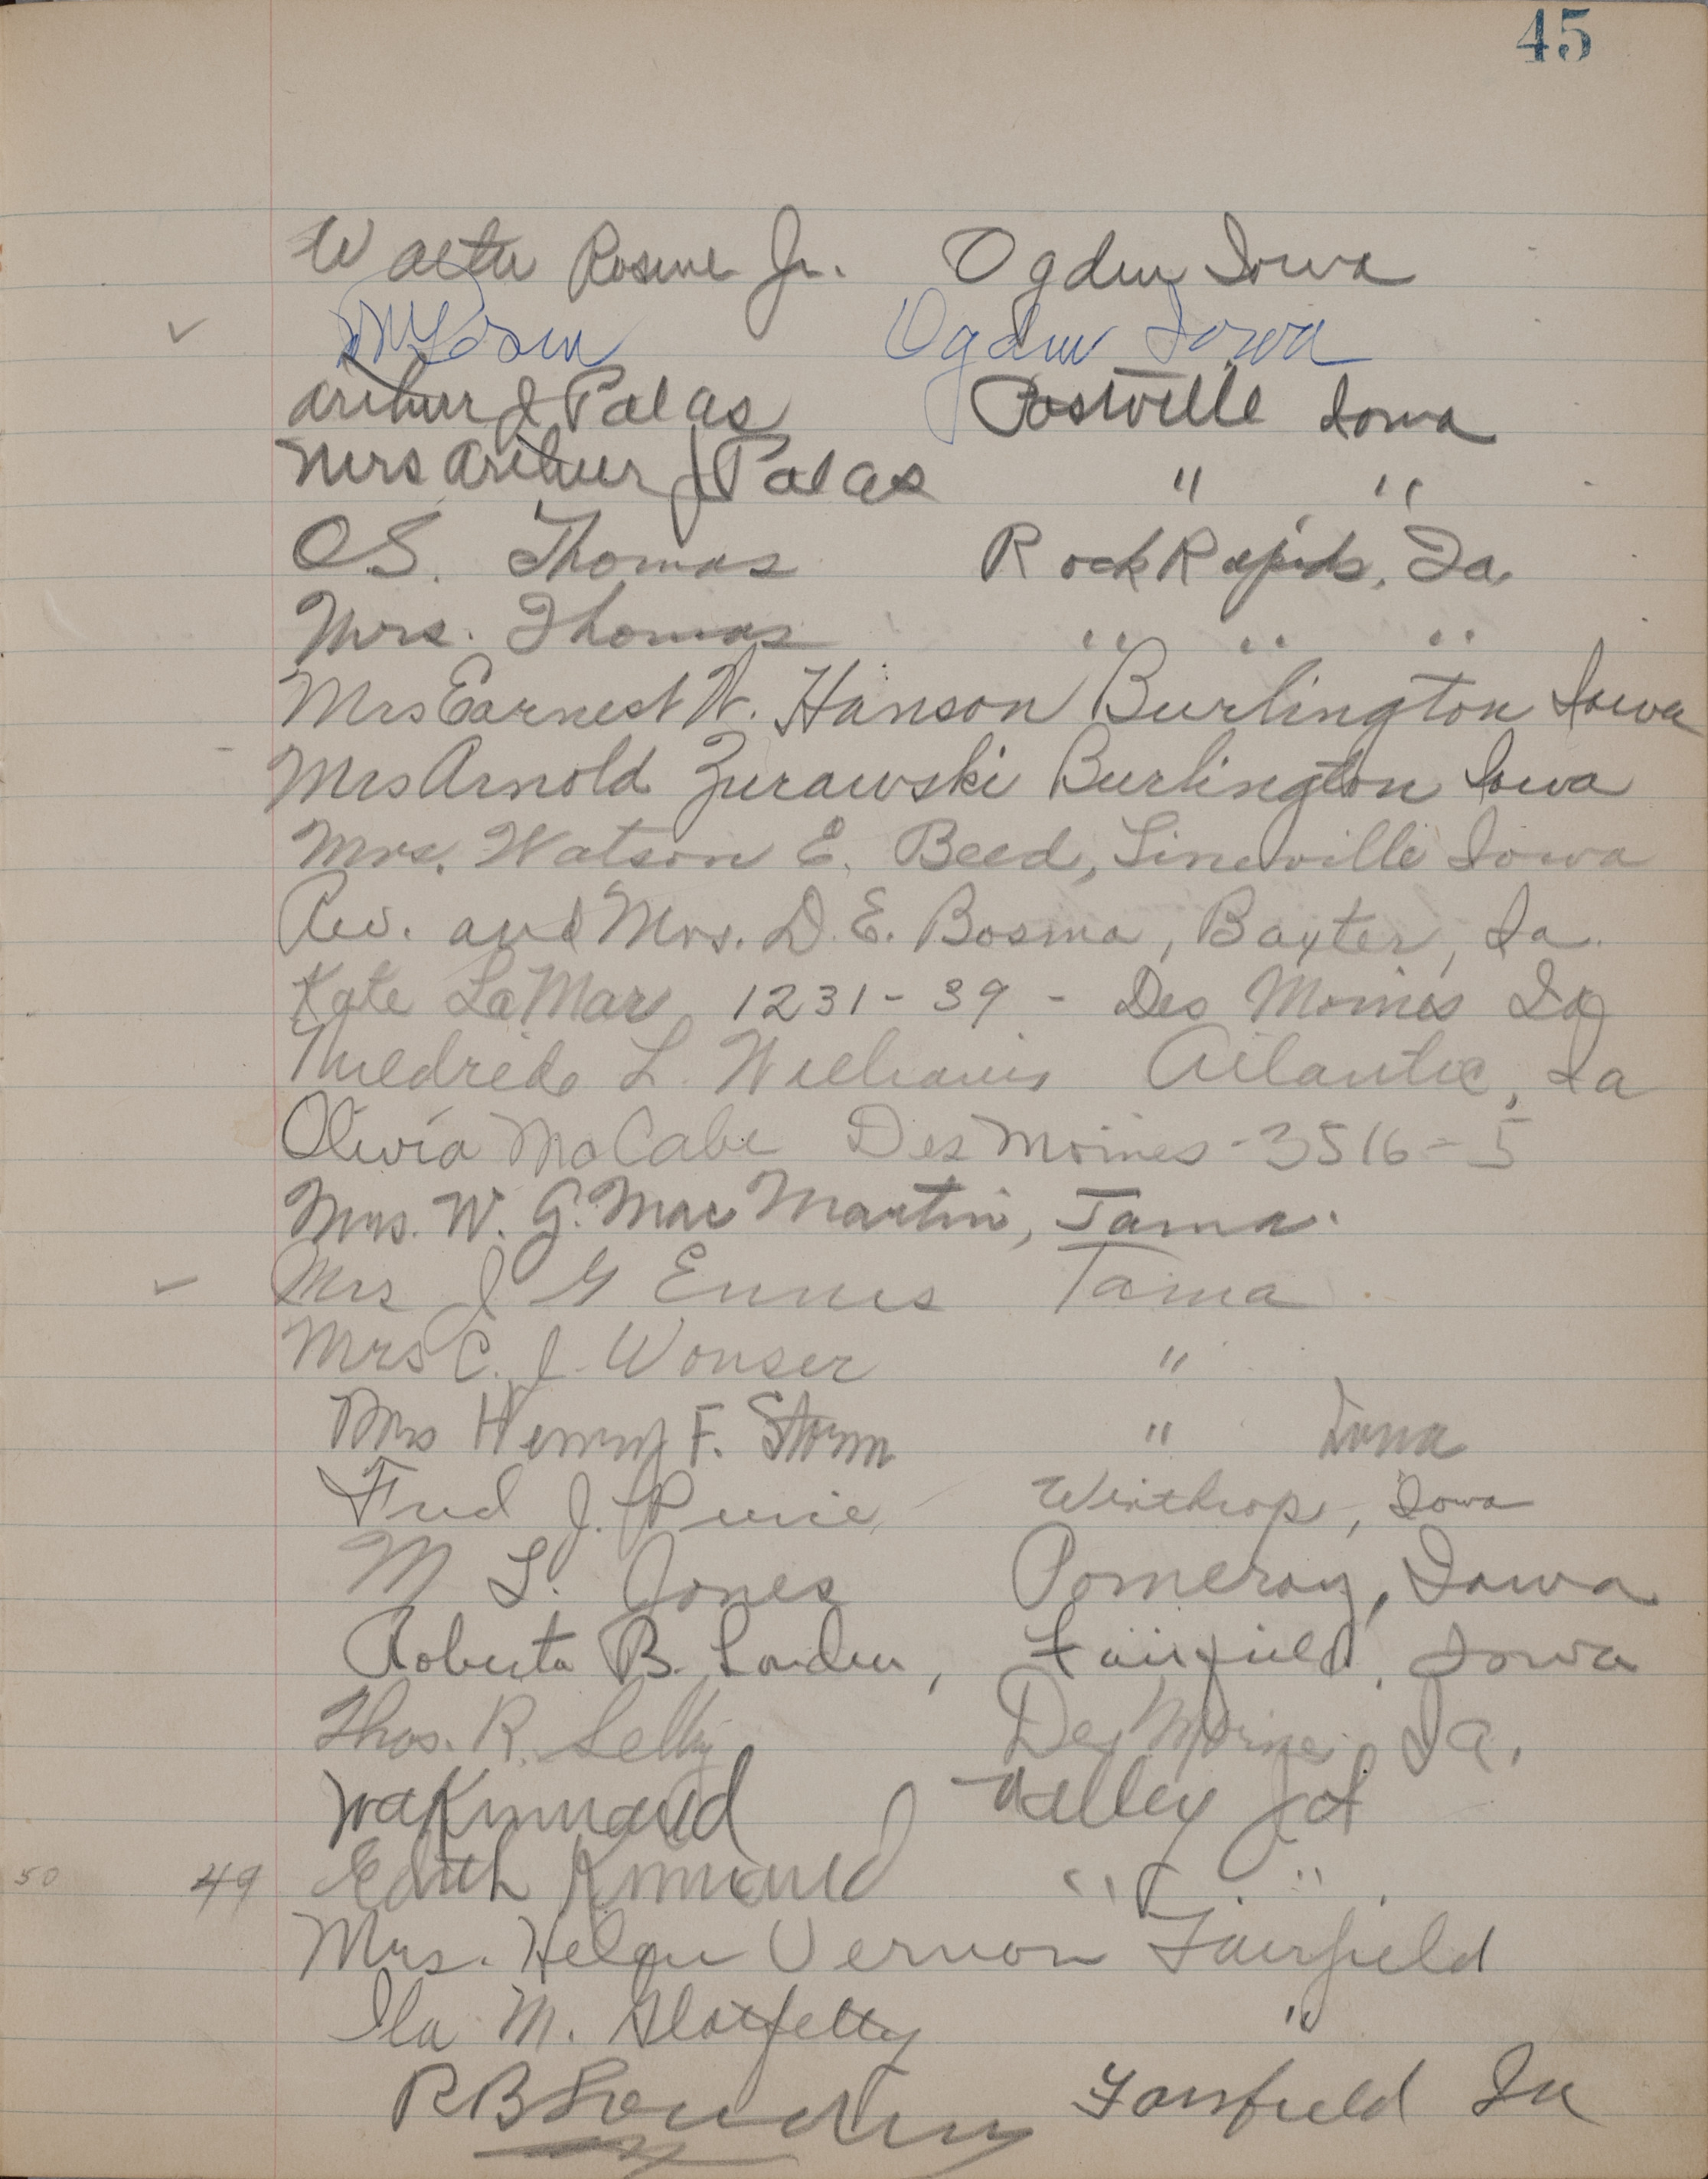 45
Walter Rosene Jr. Ogden Iowa
Ogden Iowa
Arthur J Palas Postville Iowa
Mrs Arthur J Palas " "
O.S. Thomas Rock Rapids, Ia.
Mrs. Thomas " " "
Mrs Earnest W. Hanson Burlington Iowa
Mrs Arnold Zurawski Burlington Iowa
Mrs. Watson E. Beed, Lineville Iowa
Rev. and Mrs. D. E. Bosma, Baxter, Ia.
Kate LaMar 1231-39 - Des Moines Ia
Mildred L. Williams Atlantic, Ia
Olivia McCabe Des Moines - 3516 - 5
Mrs. W. G. MacMartin, Tama.
Mrs J G Ennis Tama
Mrs C. J. Wonser "
Mrs Henry F. Storm " Iowa
Fred J. Winthrop, Iowa
M L. Jones Pomeroy, Iowa
Roberta B. Louden, Fairfield, Iowa
Thos. R. Selby Des Moines Ia.
WA Kinnaird Valley Jct
50 49 Edith Kinnaird " "
Mrs. Helen Vernon Fairfield
Ila M. Glotfelty "
R B Louden Fairfield Ia